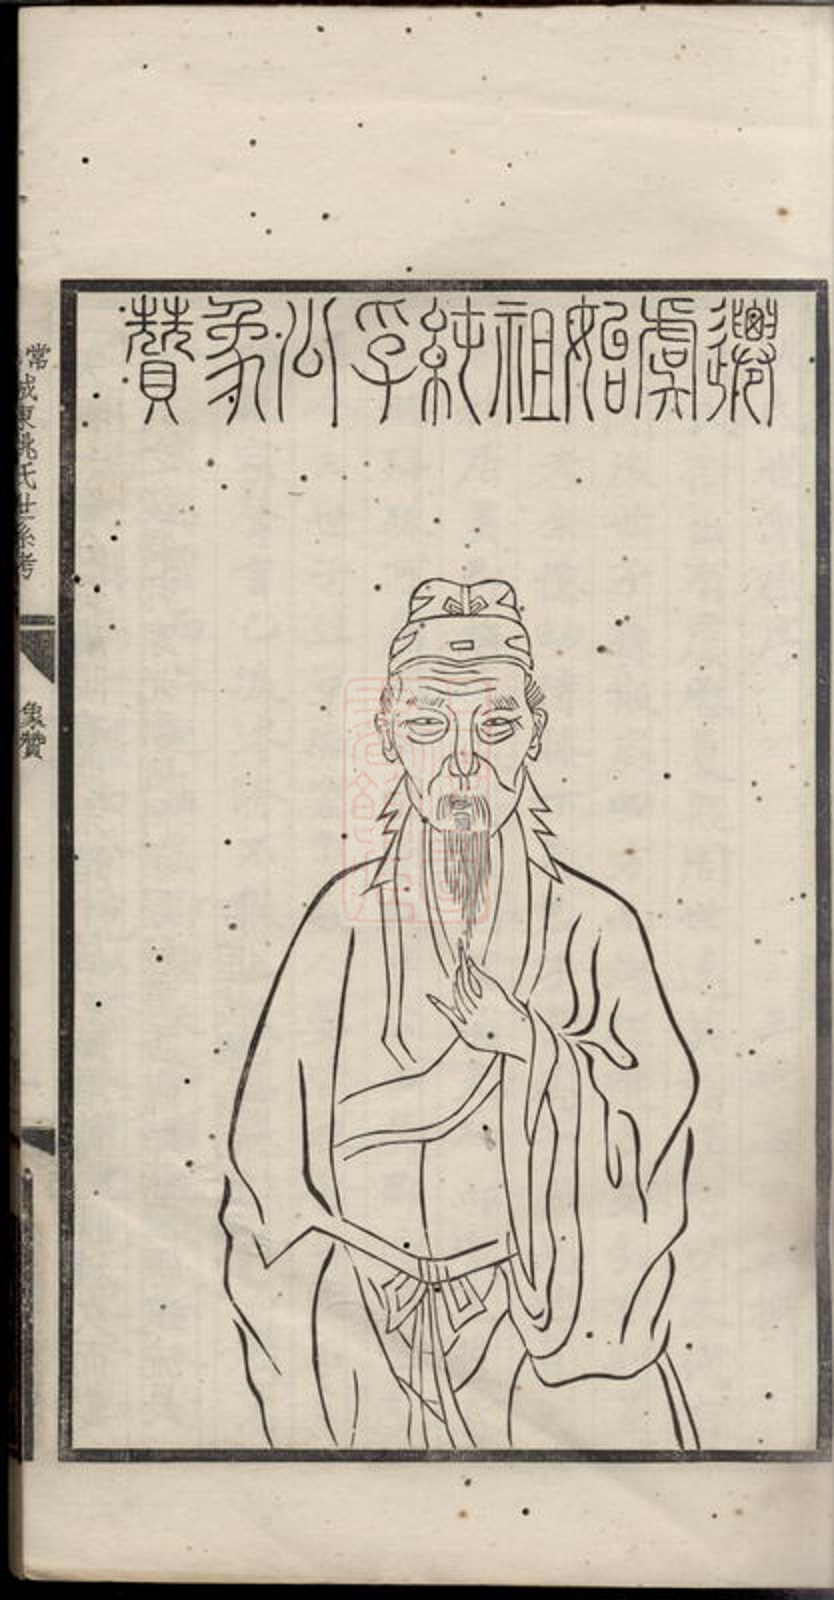 遷虞始祖純孚公象贊
常城東姚氏世系考
象贊